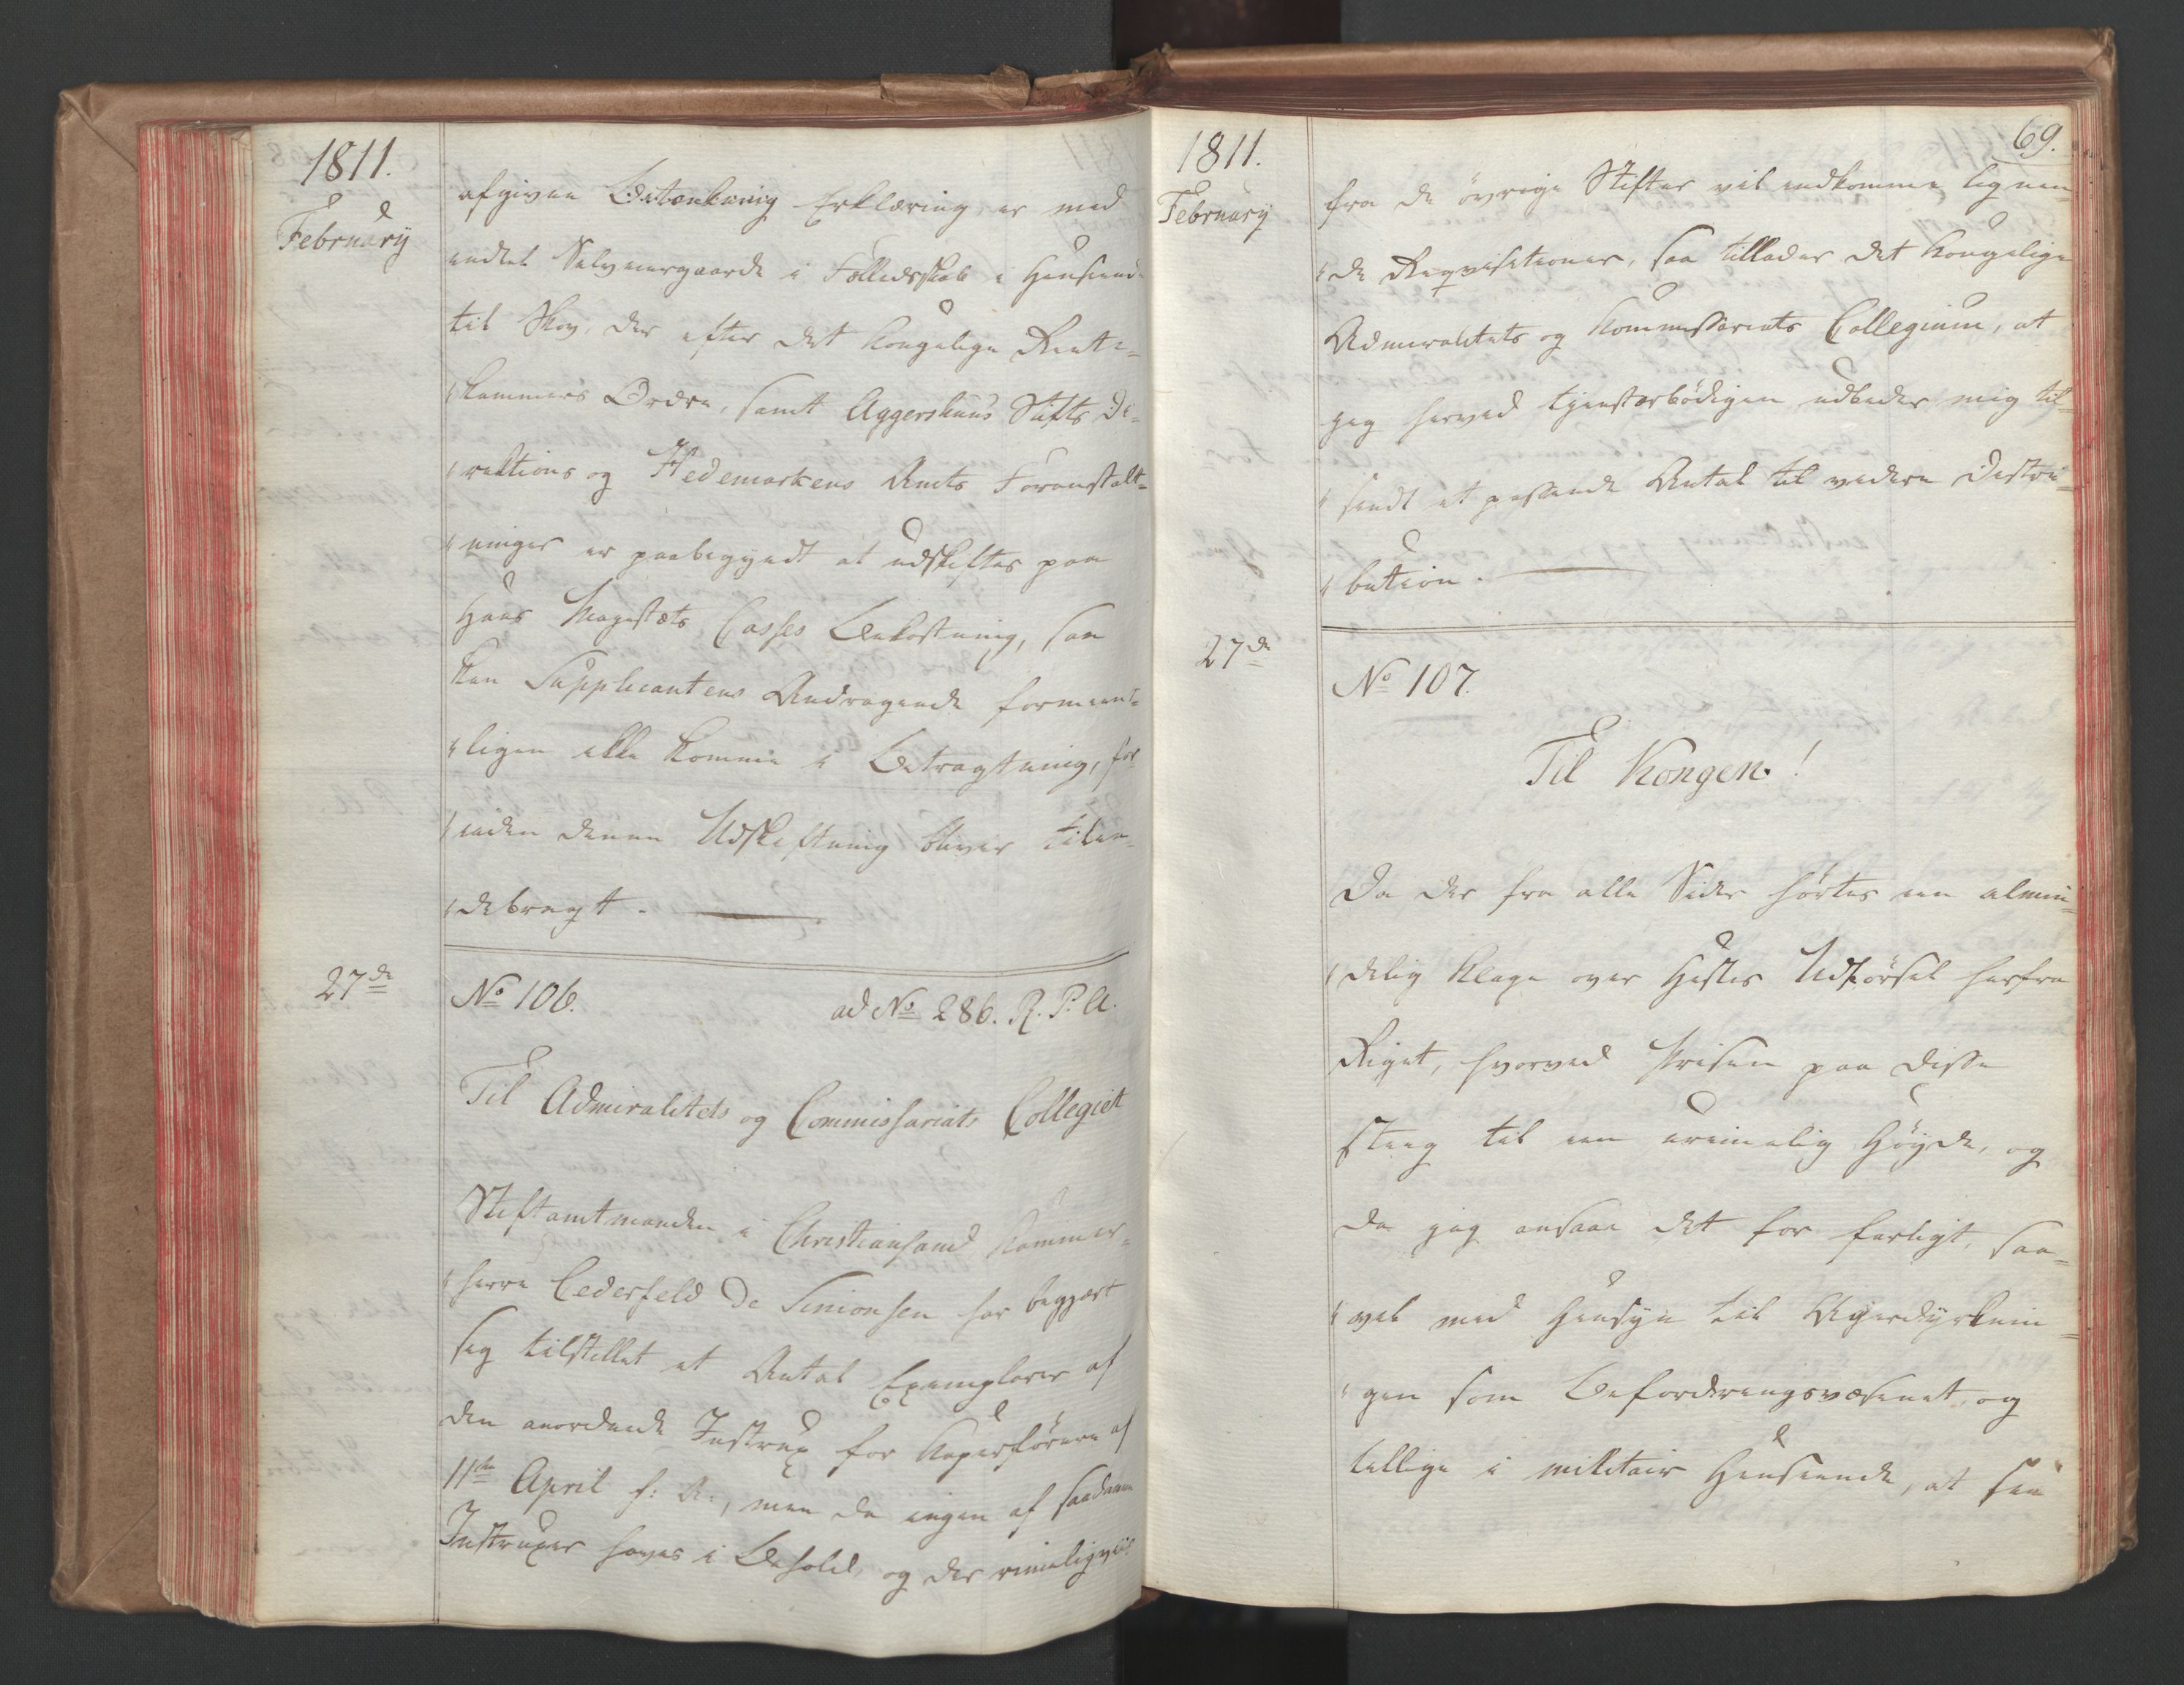 1811.
February
afgivne Betænkning Erklæring, er med
endeel Selveiergaarde i Fælledsskab i Henseende
til Skov, der efter det Kongelige Rente-
kammers Ordre, samt Aggershuus Stifts Di-
rektions og Hedemarkens Amts Foranstalt-
ninger er paabegyndt at udskiftes paa
Hans Majestæts Casses Bekostning, saa
kan Supplicantens Andragende formeent-
ligen ikke komme i Betragtning, for-
inden denne Udskiftning bliver tilen-
debragt.
27de
No 106.
ad No 286. R. P. A.
Til Admiralitets og Commissariats Collegiet
Stiftamtmanden i Christiansand Kammer-
herre Cederfeld De Simonsen har begjært
sig tilstillet et Antal Exemplarer af
den anordnede Instrux for Kaperførere af
11te April f: A:, men da ingen af saadanne
Instruxer haves i Behold, og der rimeligviis
1811.
February
69.
fra de øvrige Stifter vil indkomme lignen-
de Reqvisitioner, saa tillader det Kongelige
Admiralitets og Kommissariats Collegium, at
jeg herved tjenstærbødigen udbeder mig til-
sendt et passende Antal til videre Distri-
bution.
27de
No 107.
Til Kongen!
Da der fra alle Sider hørtes een almin-
delig Klage over Hestes Udførsel herfra
Riget, hvorved Prisen paa disse
steeg til een urimelig Høyde, og
da jeg ansaae det for farligt, saa-
vel med Hensyn til Agerdyrknin-
gen som Befordringsvæsenet, og
tillige i militair Henseende, at see